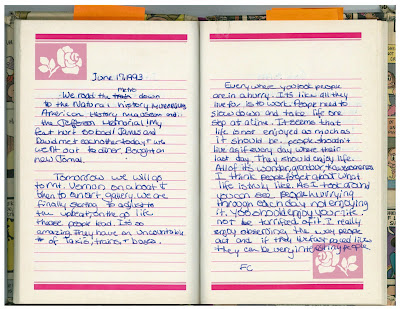 June 17, 1993
metro
We road the down
to the Natural history museum
American History museum and
the Jefferson Memorial! My
feet hurt so bad James and
David met each other today & we
went out to diner. Bought a
new Journal.
Tomorrow we will go
to Mt. Vernon on a boat &
then to an art gallery. We are
finally starting to adjust to
the on the go life
these people lead. It's so
amazing. They have an uncountable
# of Taxis, trains & buses.
Everywhere you look people
are in a hurry. It's like all they
live for is to work. People need to
slow down and take life one
step at a time. It seems that
life is not enjoyed as much as
it should be. people shouldn't
live as if every day where their
last day. They should enjoy life.
All of its wonder, grandeur, & awesomeness
I think people forget about what
life is truly like. As I look around
you can see people hurrying
through each day not enjoying
it. You should enjoy your life
not be terrified of it. I really
enjoy observing the way people
act and if their life fast paced like
they can be very interesting people.
FC